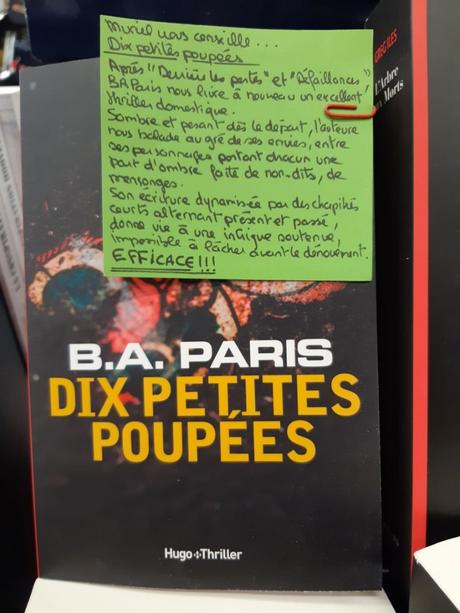 Muriel vous conseille...
Dix petites poupées
Après "Derrière les portes" et "Défaillances"
BA Paris nous livre à nouveau un excellent
thriller domestique.
Sombre et pesant dès le départ, l'auteure
nous balade au gré de ses envies, entre
ses personnages portant chacun une
part d'ombre faite de non-dits, de
mensonges.
Son écriture dynamisée par des chapitres
courts alternant présent et passé,
donne vie à une intrigue soutenue,
impossible à lâcher avant le dénouement.
EFFICACE!!!
B.A. PARIS
DIX PETITES
POUPÉES
Hugo+Thriller
GREG ILES
L'Arbre
Morts